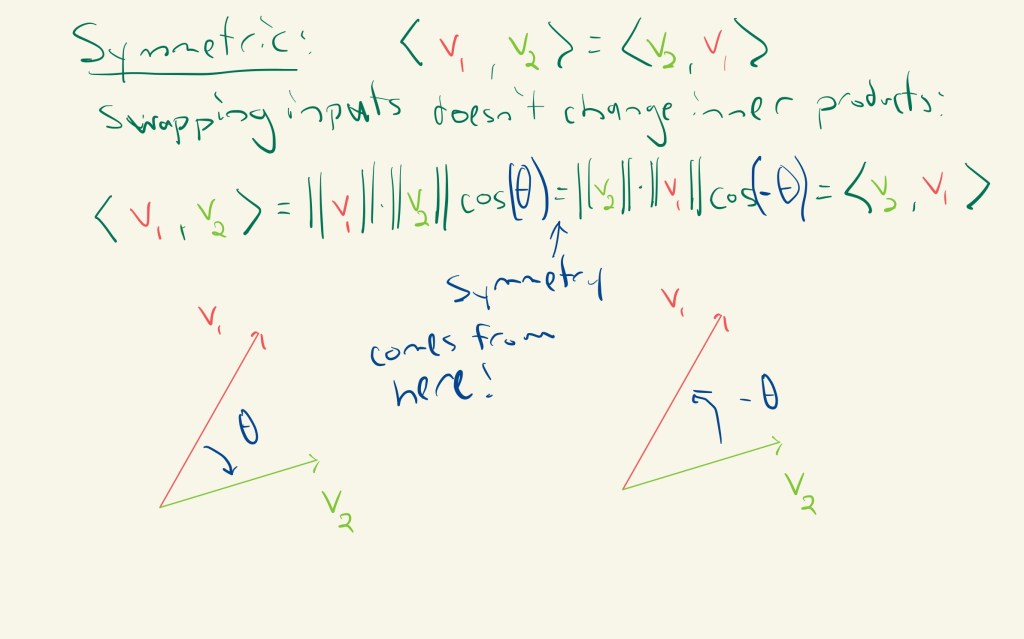 Symmetric: ⟨v₁, v₂⟩ = ⟨v₂, v₁⟩
swapping inputs doesn't change inner products:
⟨v₁, v₂⟩ = ||v₁||·||v₂|| cos(θ) = ||v₂||·||v₁|| cos(-θ) = ⟨v₂, v₁⟩
↑
symmetry
comes from
here!
v₁
θ
v₂
v₁
-θ
v₂